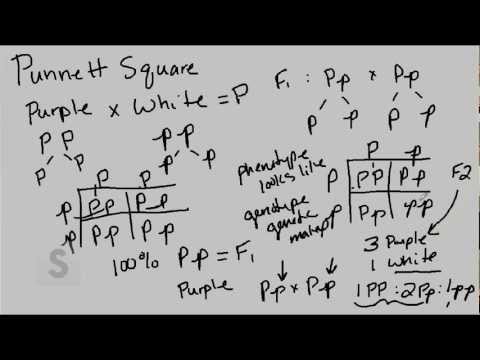 Punnett Square
Purple x White = P
PP pp
P P p p
P P
p Pp Pp
p Pp Pp
100% Pp = F1
Purple
S
F1 : Pp x Pp
P p P p
phenotype
looks like
genotype
genetic
makeup
P p
P PP Pp
p Pp pp
F2
3 Purple
1 White
Pp x Pp
1PP : 2Pp : 1pp